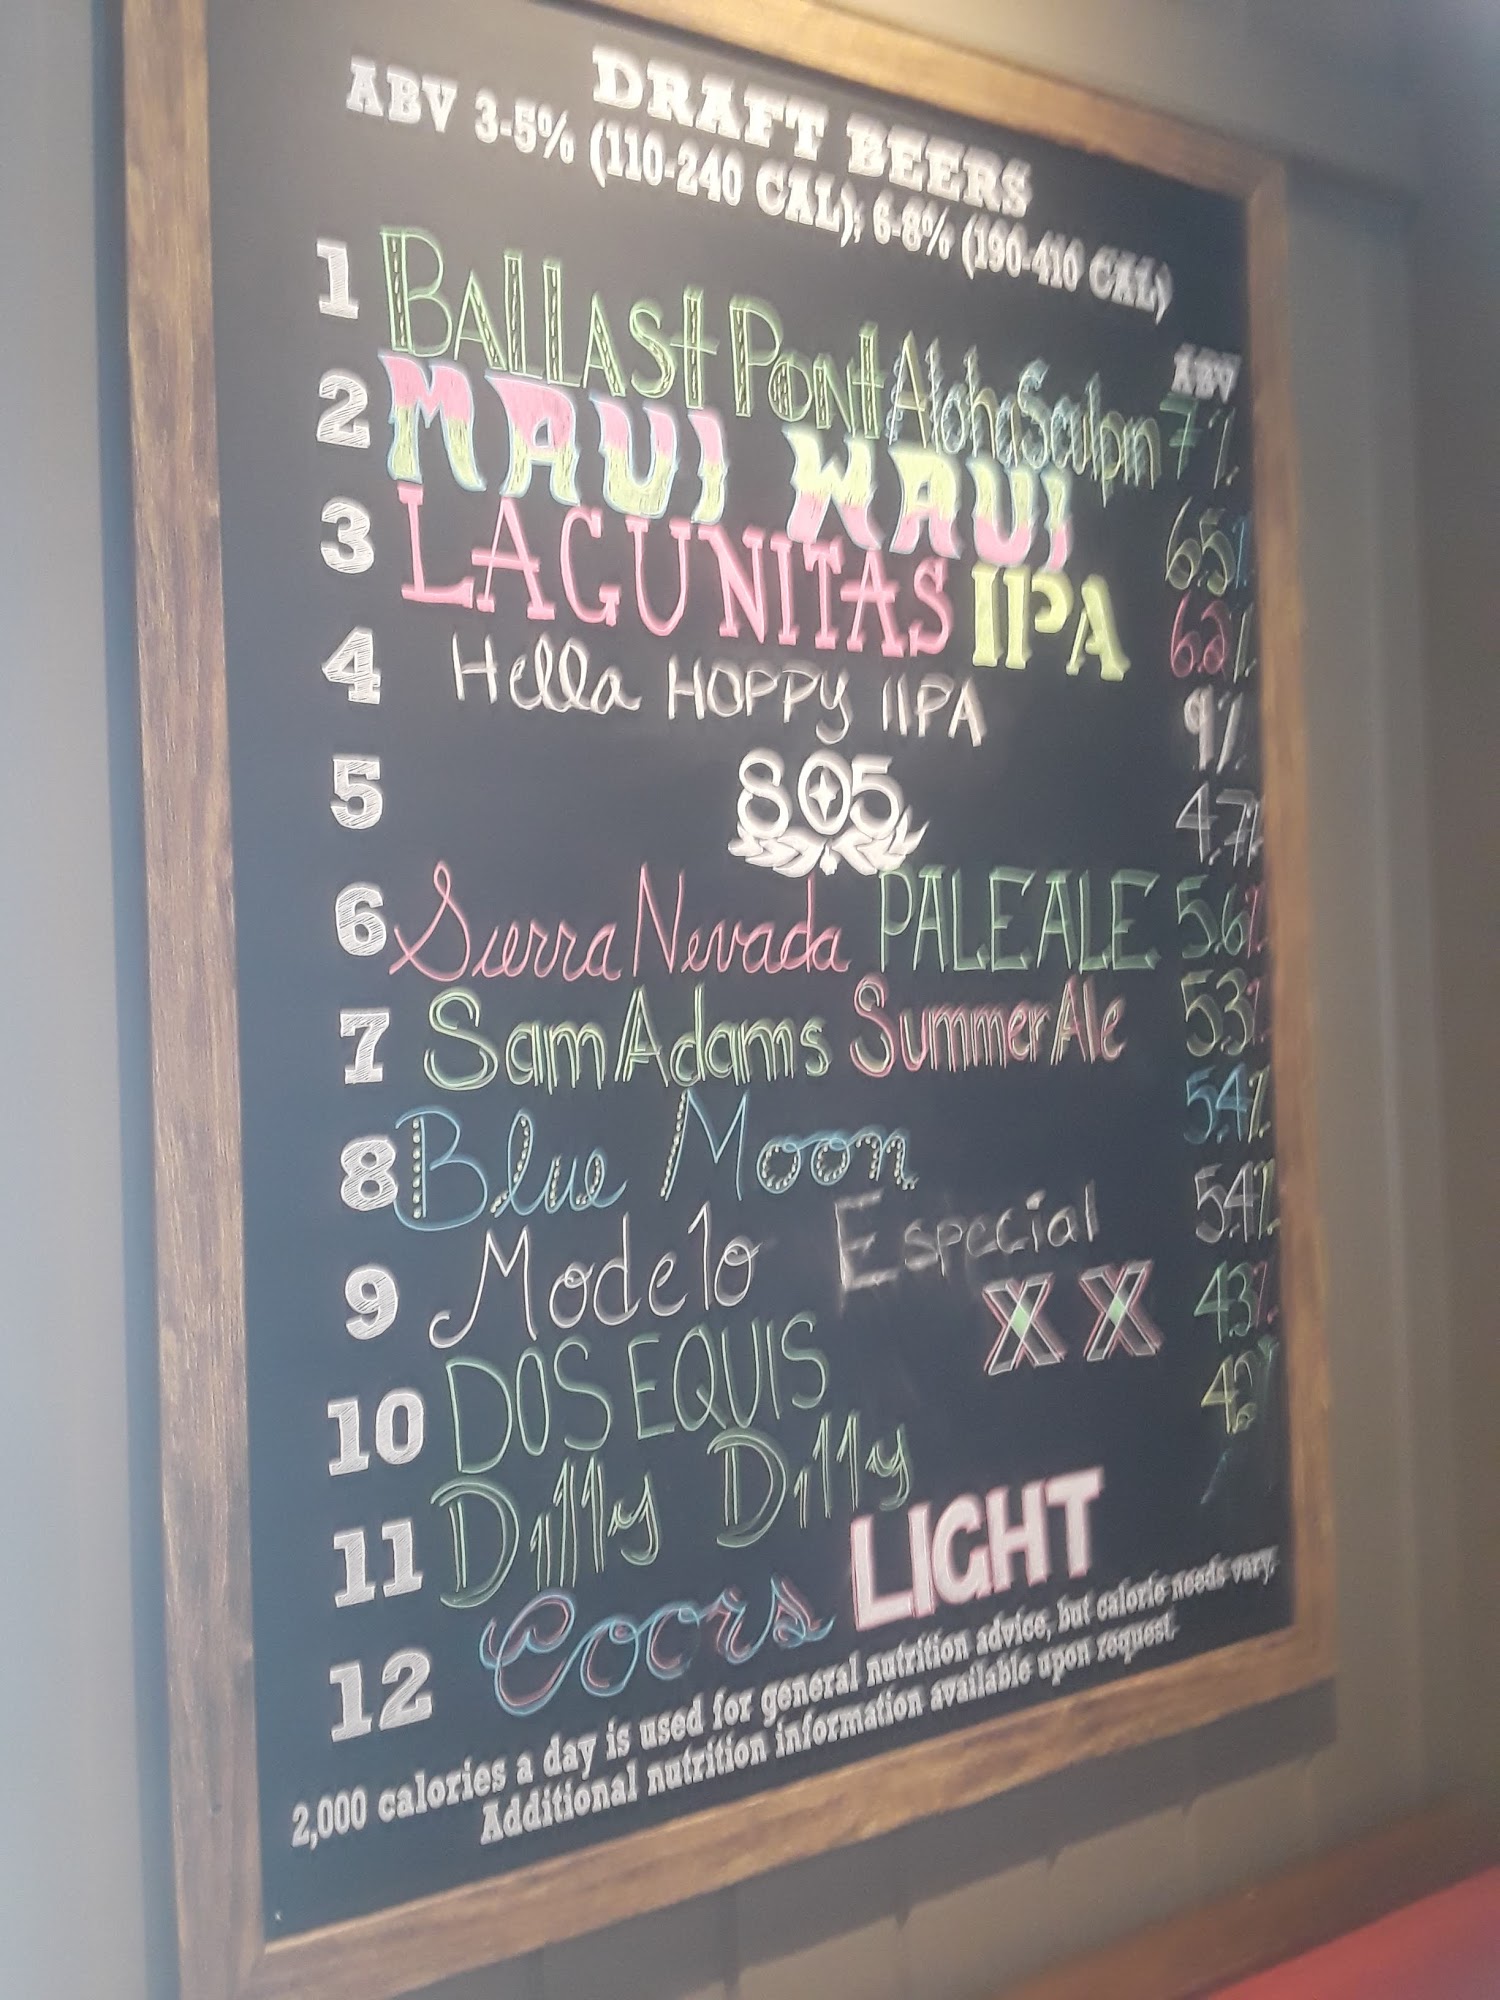 DRAFT BEERS
ABV 3-5% (110-240 CAL); 6-8% (190-410 CAL)
ABV
1 BALLAST PONT Aloha Sculpin 7%
2 MAUI WAUI 6.5%
3 LAGUNITAS IPA 6.2%
4 Hella HOPPY IIPA 9%
5 805 4.7%
6 Sierra Nevada PALE ALE 5.6%
7 Sam Adams Summer Ale 5.3%
8 Blue Moon 5.4%
9 Modelo Especial 5.4%
10 DOS EQUIS XX 4.3%
11 Dilly Dilly 4.2
12 Coors LIGHT
2,000 calories a day is used for general nutrition advice, but calorie needs vary.
Additional nutrition information available upon request.